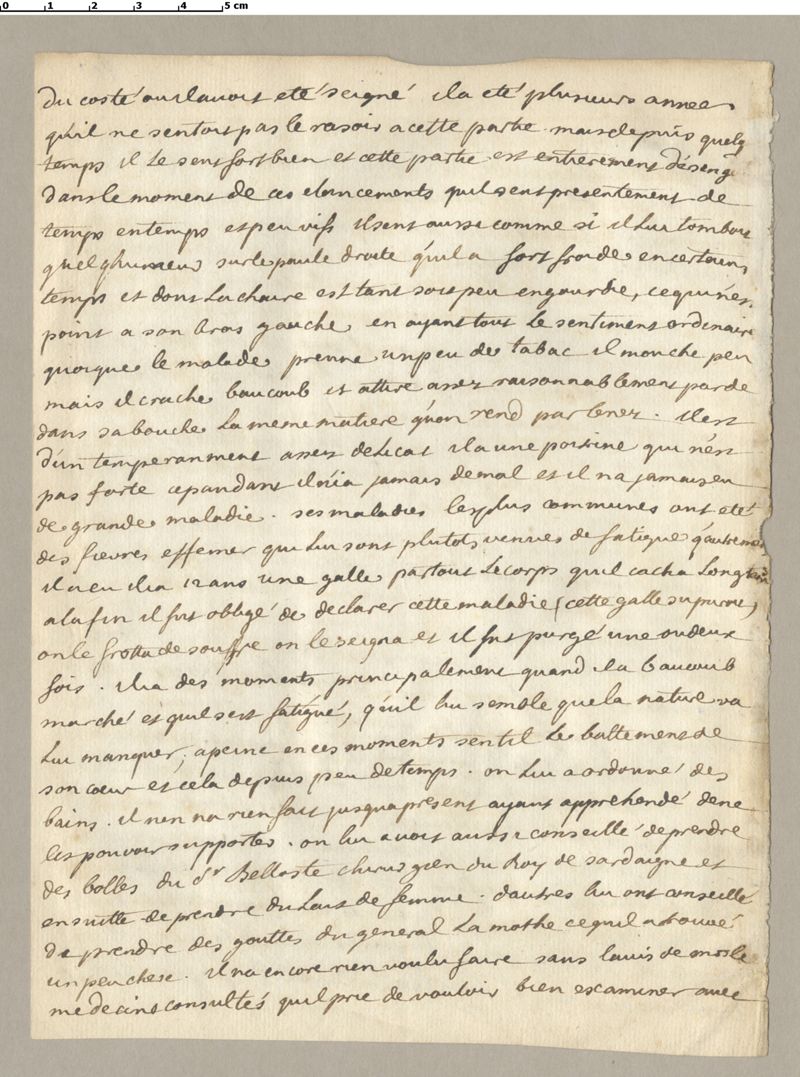 0 1 2 3 4 5 cm
du costé ou il avoit eté seigné il a eté plusieurs annee
qu'il ne sentoit pas le rasoir a cette partie mais depuis quelq
temps il le sent fort bien et cette partie est entierement déseng
dans le moment de ces elancements qu'il sent presentement de
temps en temps et peu vifs il sent aussi comme si il lui tomboit
quelq humeur sur l'epaule droite qu'il a fort froide en certains
temps et dont la chaire est tant soit peu engourdie, ce qui n'est
point a son bras gauche en ayant tout le sentiment ordinaire
quoique le malade prenne un peu de tabac il mouche peu
mais il crache baucoub et attire assez raisonnablement par de
dans sa bouche la meme matiere qu'on rend par le nez. il est
d'un temperanment assez delicat il a une poitrine qui n'est
pas forte cepandant il n'i a jamais de mal et il na jamais eu
de grande maladie. ses maladies les plus communes ont eté
des fievres effemer qui lui sont plutots venues de fatigue qu'autremen
il a eu il i a 12 ans une galle partout le corps quil cacha longtem
a la fin il fut obligé de declarer cette maladie (cette galle supuroit)
on le frotta de souffre on le seigna et il fut purgé une ou deux
fois. il i a des moments principalement quand il a baucoub
marché et quil est fatigué, qu'il lui semble que la nature va
lui manquer, a peine en ces moments sentil le battement de
son cœur et cela depuis peu de temps. on lui a ordonné des
bains. il n'en na rien fait jusqua present ayant apprehendé de ne
les pouvoir supporter. on lui avoit aussi conseillé de prendre
des bolles du sr Belloste chirurgien du Roy de sardaigne et
en suitte de prendre du lait de femme. d'autres lui ont conseillé
de prendre des gouttes du general La mothe ce quil a trouvé
un peu chere. il na encore rien voulu faire sans lavis de mrs le
medecins consultés quil prie de vouloir bien examiner avec